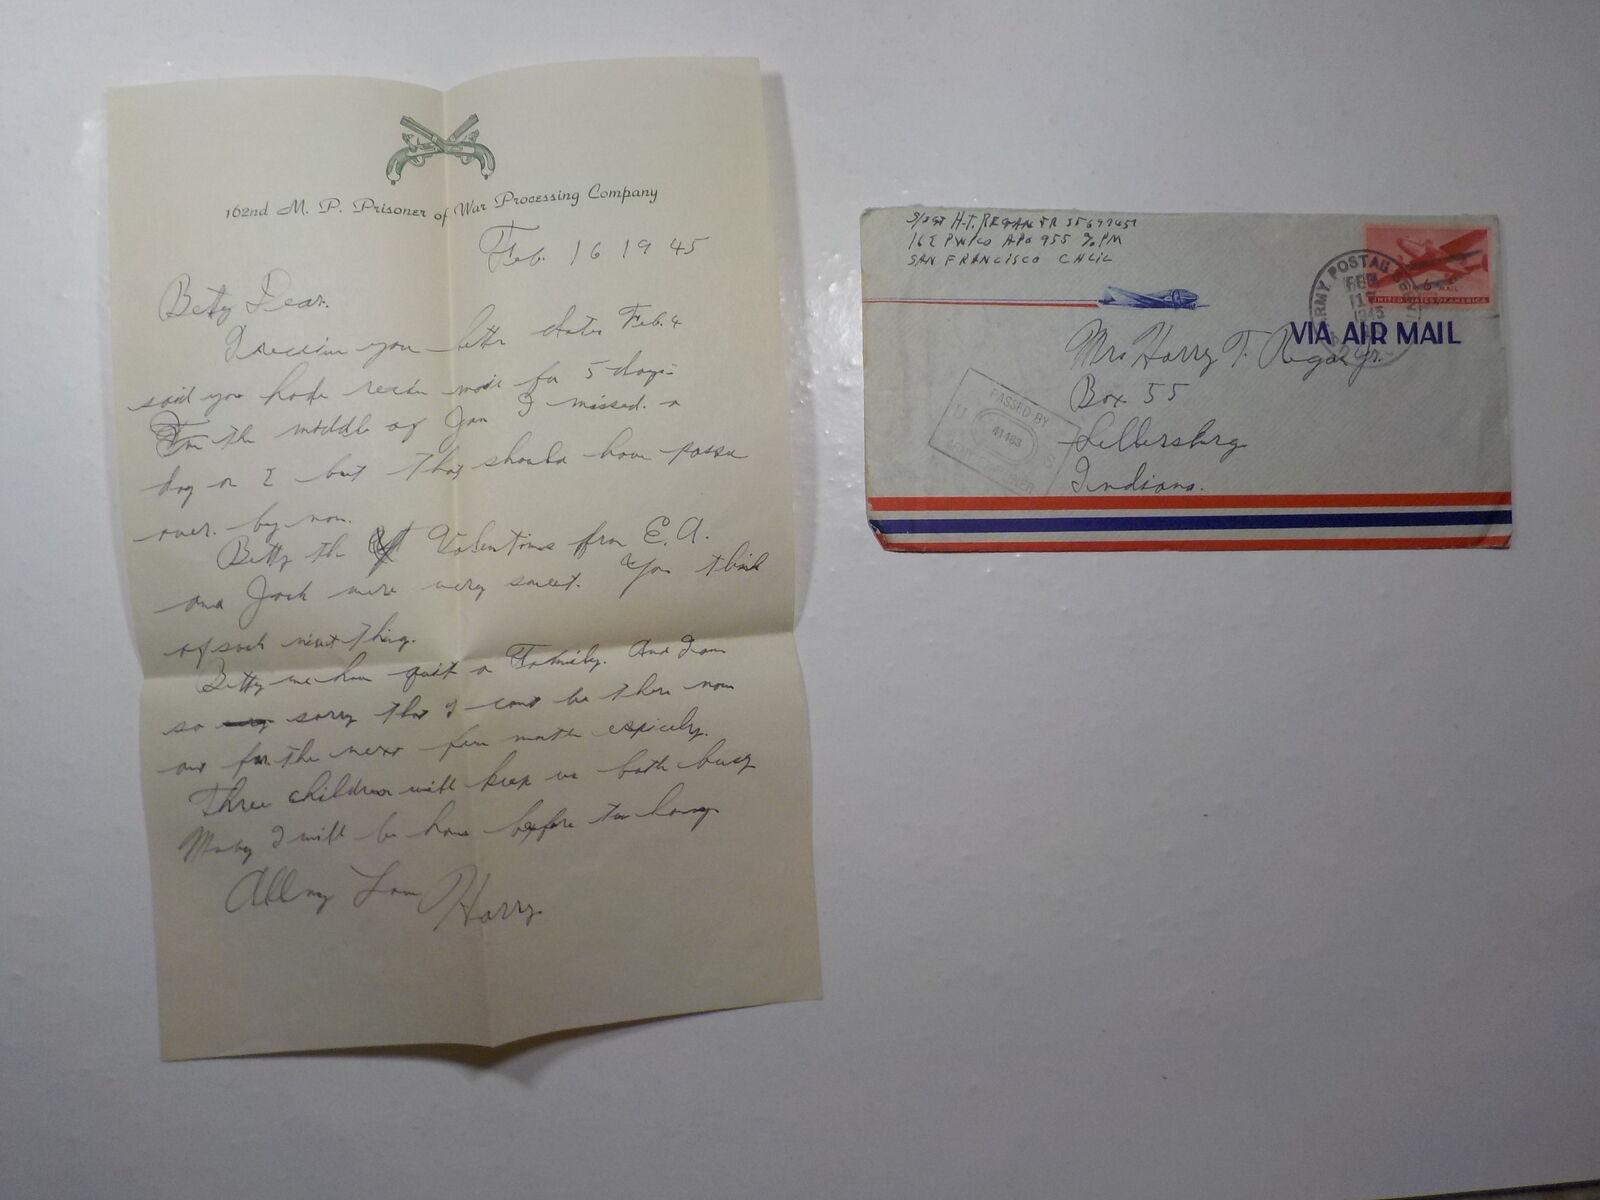 162nd M. P. Prisoner of War Processing Company
Feb. 16 1945
Betty Dear.
I receive you letter dates Feb. 4
said you hade mail for 5 days
In the middle of Jan I missed a
day or 2 but that should have passe
over. by now.
Betty the Valentines from E. A.
and Jack were very sweet. You think
of such things.
Betty we have quit a Family. And I am
so sorry that I cant be there now
for the next few month
Three children will keep us both busy
Mayby I will be home before too long
All my Love Harry
S/Sgt H.T. REGAN JR
APO 955 % PM
SAN FRANCISCO CALIF
ARMY POSTAL SERVICE
FEB
17
1945
6¢
AIR MAIL
UNITED STATES OF AMERICA
VIA AIR MAIL
Mrs Harry T. Regan Jr.
Box 55
Sellersburg
Indiana.
PASSED BY
U S
41483
ARMY EXAMINER